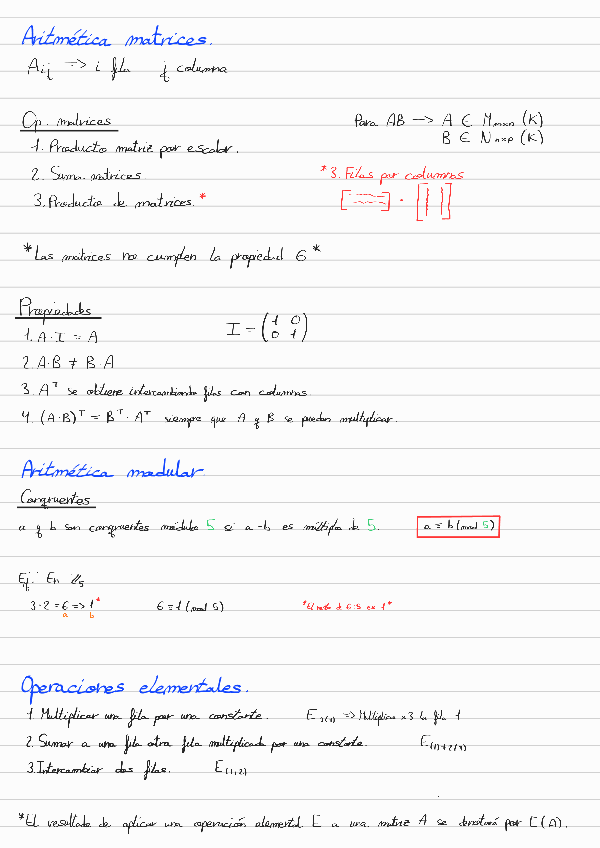 Aritmética matrices.
Aij => i fila j columna
Op. matrices
Para AB → A ∈ Mmxn (K)
B ∈ Nnxp (K)
1. Producto matriz por escalar.
2. Suma matrices
3. Producto de matrices.*
*3. Filas por columnas
*Las matrices no cumplen la propiedad 6*
Propiedades
I = (1 0
0 1)
1. A·I = A
2. A·B ≠ B·A
3. Aᵀ se obtiene intercambiando filas con columnas
4. (A·B)ᵀ = Bᵀ·Aᵀ siempre que A y B se puedan multiplicar.
Aritmética modular
Congruentes
a y b son congruentes módulo 5 si a-b es múltiplo de 5. a ≡ b (mod 5)
Ej: En ℤ5
3·2 = 6 => 1* 6 ≡ 1 (mod 5) *El resto de 6:5 es 1*
a b
Operaciones elementales.
1. Multiplicar una fila por una constante. => Multiplica x3 la fila 1
2. Sumar a una fila otra fila multiplicada por una constante.
3. Intercambiar dos filas. E(1,2)
*El resultado de aplicar una operación elemental E a una matriz A se denotará por E(A).